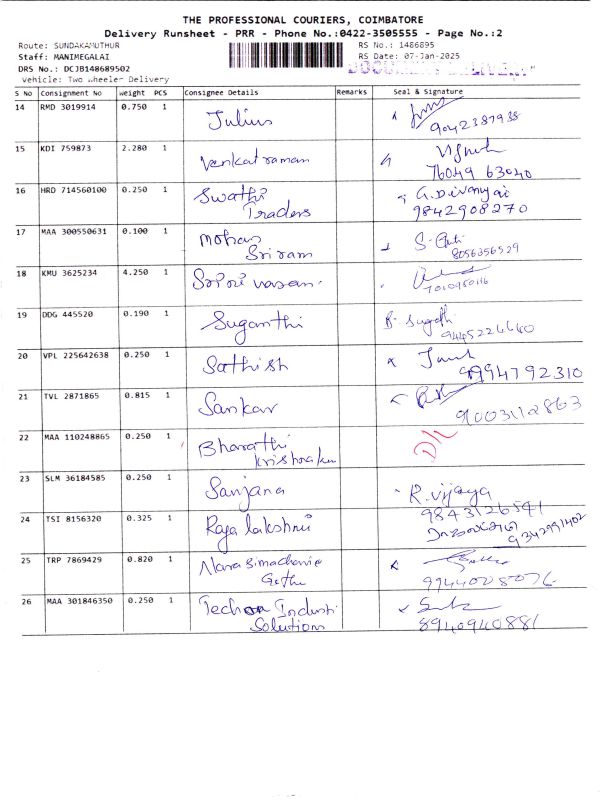 THE PROFESSIONAL COURIERS, COIMBATORE
Delivery Runsheet - PRR - Phone No.:0422-3505555 - Page No.:2
Route: SUNDAKAMUTHUR
RS No.: 1486895
Staff: MANIMEGALAI
RS Date: 07-Jan-2025
DRS No.: DCJB148689502
Vehicle: Two Wheeler Delivery
S No Consignment No Weight PCS Consignee Details Remarks Seal & Signature
14 RMD 3019914 0.750 1 Julius
9042387938
15 KDI 759873 2.280 1 Venkatraman
76049 63040
16 HRD 714560100 0.250 1 Swathi G.Divanyai
Traders 9842908270
17 MAA 300550631 0.100 1 Mohan
Sriram 8056356529
18 KMU 3625234 4.250 1
19 DDG 445520 0.190 1 Suganthi
9445226640
20 VPL 225642638 0.250 1 Sathish
9994792310
21 TVL 2871865 0.815 1 Sankar
22 MAA 110248865 0.250 1 Bharathi
D/L
23 SLM 36184585 0.250 1 Sanjana R.Vijaya
9843126541
24 TSI 8156320 0.325 1 Rajalakshmi
25 TRP 7869429 0.820 1
26 MAA 301846350 0.250 1
Solutions 8940940881